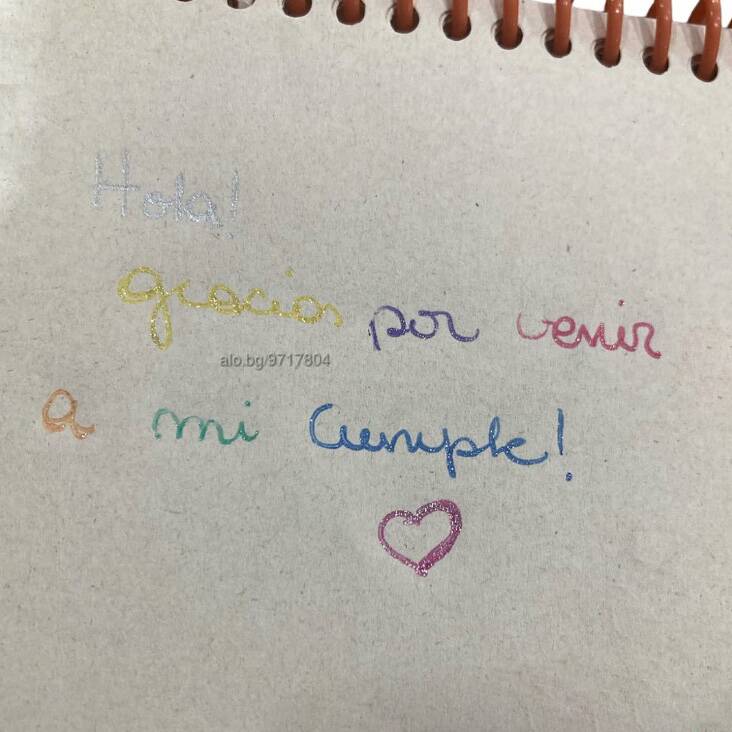 Hola!
gracias por venir
alo.bg/9717804
a mi Cumple!